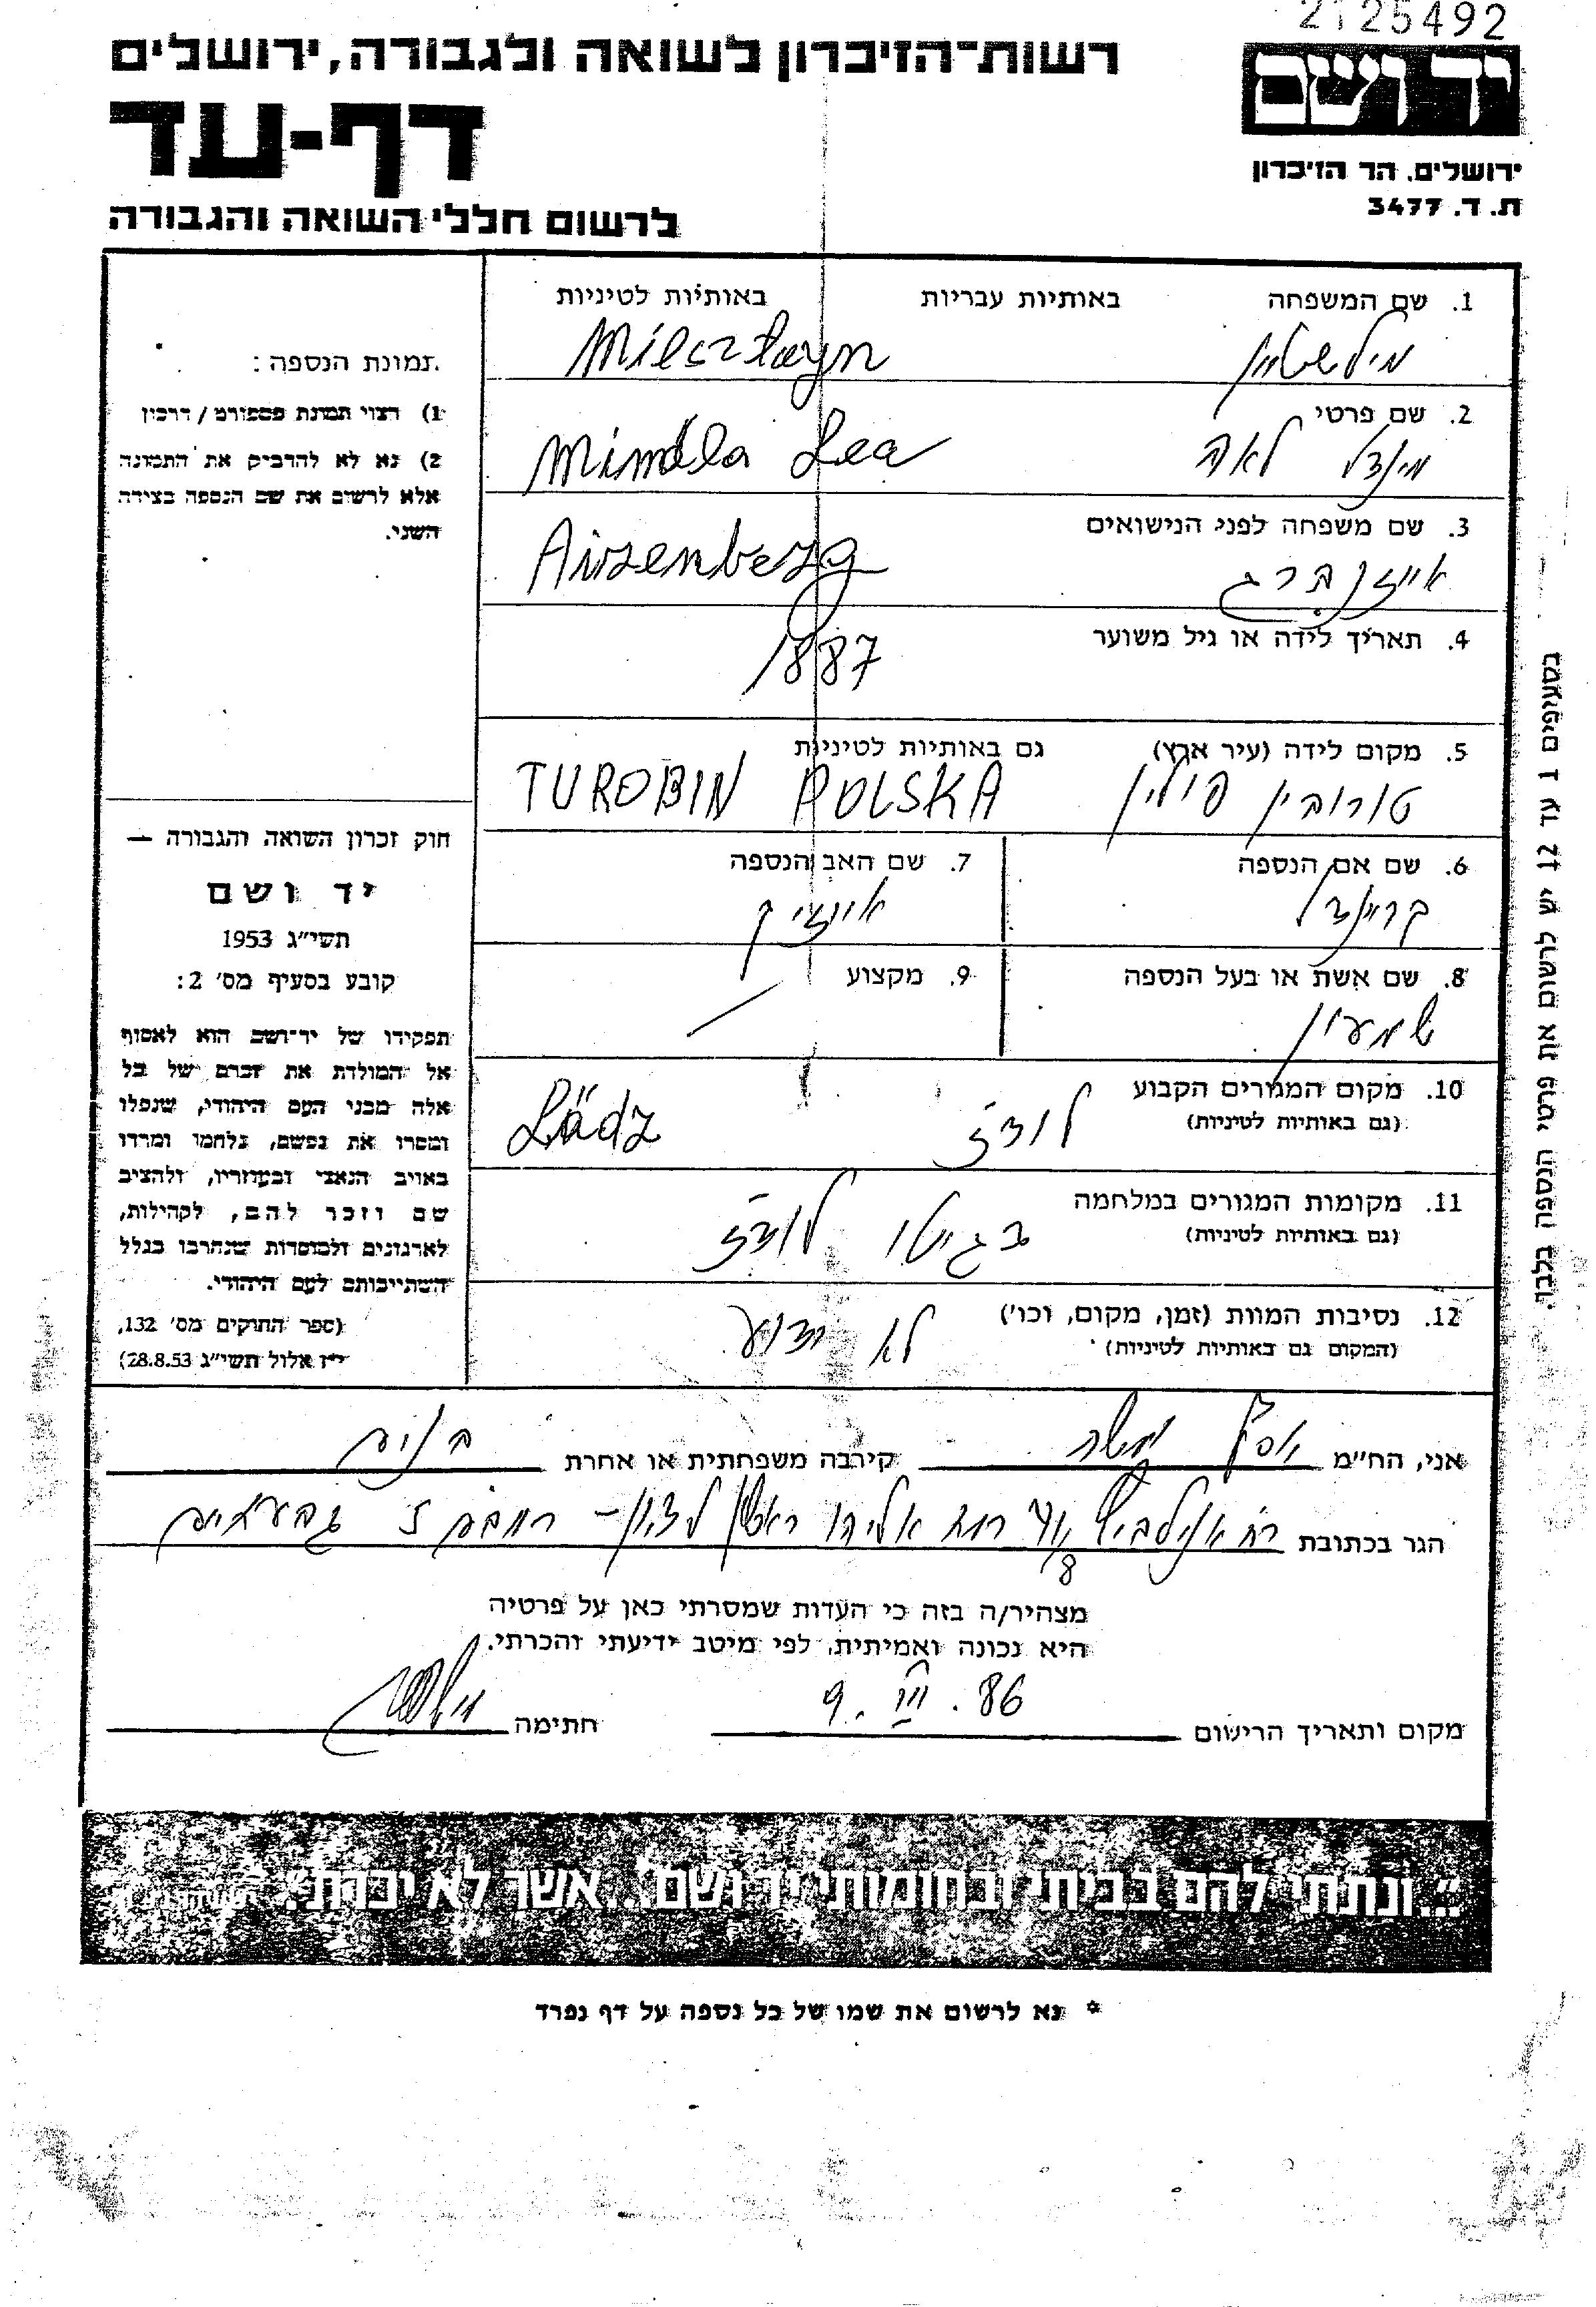 2125492
רשות־הזיכרון לשואה ולגבורה, ירושלים
יד ושם
דף-עד
ירושלים, הר הזיכרון
ת. ד. 3477
לרשום חללי השואה והגבורה
1. שם המשפחה באותיות עבריות באותיות לטיניות
מילשטיין Milsztayn
2. שם פרטי
מינדל לאה Mindla Lea
3. שם משפחה לפני הנישואים
אייזנברג Aizenberg
4. תאריך לידה או גיל משוער
1887
5. מקום לידה (עיר ארץ) גם באותיות לטיניות
טורובין פולין TUROBIN POLSKA
6. שם אם הנספה 7. שם האב הנספה
בריינדל
8. שם אשת או בעל הנספה 9. מקצוע
שמעון —
10. מקום המגורים הקבוע
(גם באותיות לטיניות)
לודז Lädz
11. מקומות המגורים במלחמה
(גם באותיות לטיניות)
בגיטו לודז
12. נסיבות המוות (זמן, מקום, וכו')
(המקום גם באותיות לטיניות)
לא ידוע
תמונת הנספה:
1) רצוי תמונת פספורט / דרכון
2) נא לא להדביק את התמונה
אלא לרשום את שם הנספה בצידה
השני.
חוק זכרון השואה והגבורה —
יד ושם
תשי"ג 1953
קובע בסעיף מס' 2:
תפקידו של יד־ושם הוא לאסוף
אל המולדת את זכרם של כל
אלה מבני העם היהודי, שנפלו
ומסרו את נפשם, נלחמו ומרדו
באויב הנאצי ובעוזריו, ולהציב
שם וזכר להם, לקהילות,
לארגונים ולמוסדות שנחרבו בגלל
השתייכותם לעם היהודי.
(ספר החוקים מס' 132,
י"ז אלול תשי"ג 28.8.53)
בסעיפים 1 עד 12 יש לרשום את פרטי הנספה בלבד.
אני, הח"מ משה קירבה משפחתית או אחרת
הגר בכתובת רח ראשון לציון – רחבת 8
מצהיר/ה בזה כי העדות שמסרתי כאן על פרטיה
היא נכונה ואמיתית, לפי מיטב ידיעתי והכרתי.
מקום ותאריך הרישום 9. III. 86 חתימה
"...ונתתי להם בביתי ובחומותי יד ושם... אשר לא יכרת."
* נא לרשום את שמו של כל נספה על דף נפרד